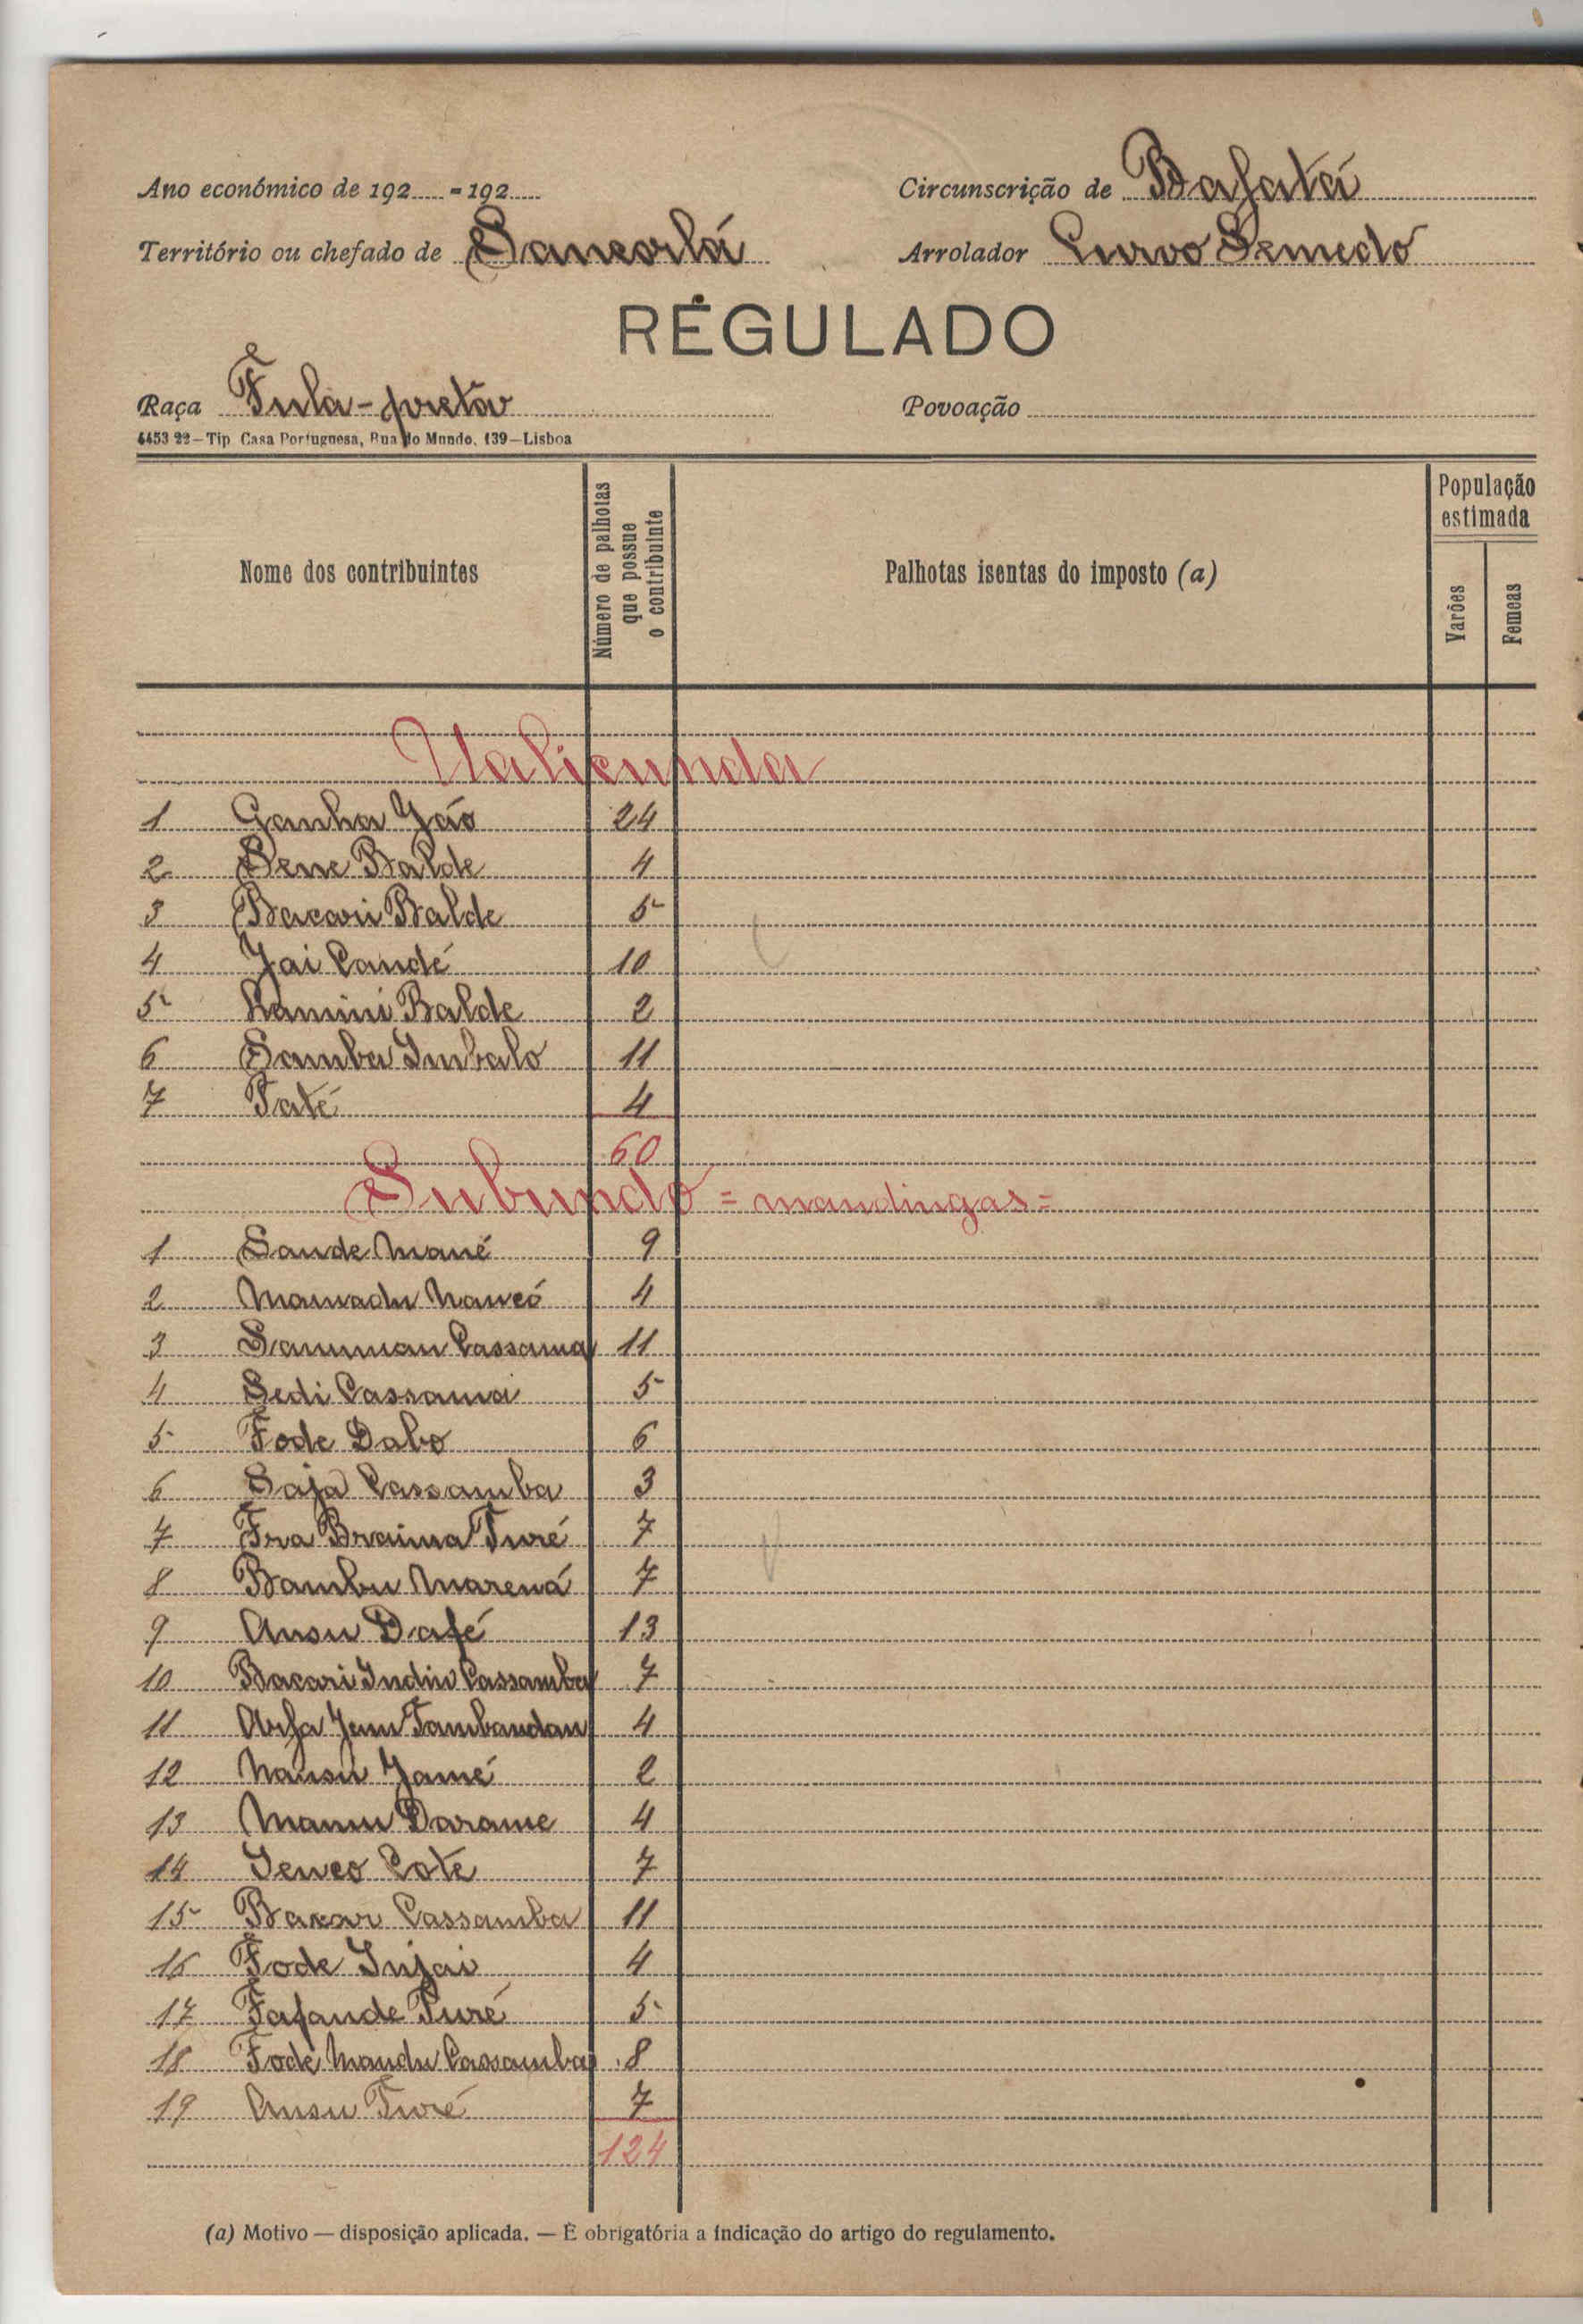 Ano económico de 192..... - 192.....
Circunscrição de Bafatá
Território ou chefado de Sancorlá
Arrolador Curvo Semedo
RÉGULADO
Raça Fula-preta
Povoação
4453 22—Tip Casa Portuguesa, Rua do Mundo, 139—Lisboa
Nome dos contribuintes
Número de palhotas que possue o contribuinte
Palhotas isentas do imposto (a)
População estimada
Varões
Femeas
Ualicunda
1 Ganha Jáo 24
2 Sene Balde 4
3 Bacari Balde 5
4 Jai Candé 10
5 Lamini Balde 2
6 Samba Imbalo 11
7 Taté 4
60
Subundo = mandingas =
1 Sande Mané 9
2 Mamadu Nancó 4
3 Sanuman Cassama 11
4 Sedi Cassama 5
5 Fode Dabo 6
6 Saja Cassamba 3
7 Fra Braima Turé 7
8 Bambu Marená 7
9 Ansu Dafé 13
10 Bacari Indin Cassamba 7
11 Arfa Jenu Tambandan 4
12 Nansu Jamé 2
13 Manu Darame 4
14 Senco Cote 7
15 Bacar Cassamba 11
16 Fode Injai 4
17 Fafande Turé 5
18 Fode Mandu Cassamba 8
19 Ansu Turé 7
124
(a) Motivo — disposição aplicada. — È obrigatória a indicação do artigo do regulamento.